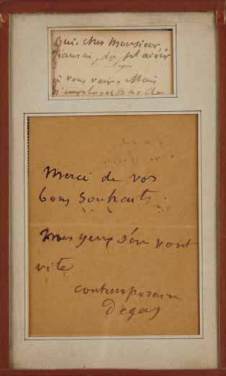 Oui, cher Monsieur,
j'aurai du plaisir
à vous voir. Mais
Merci de vos
bons souhaits.
Mes yeux s'en vont
vite
contemporain
Degas